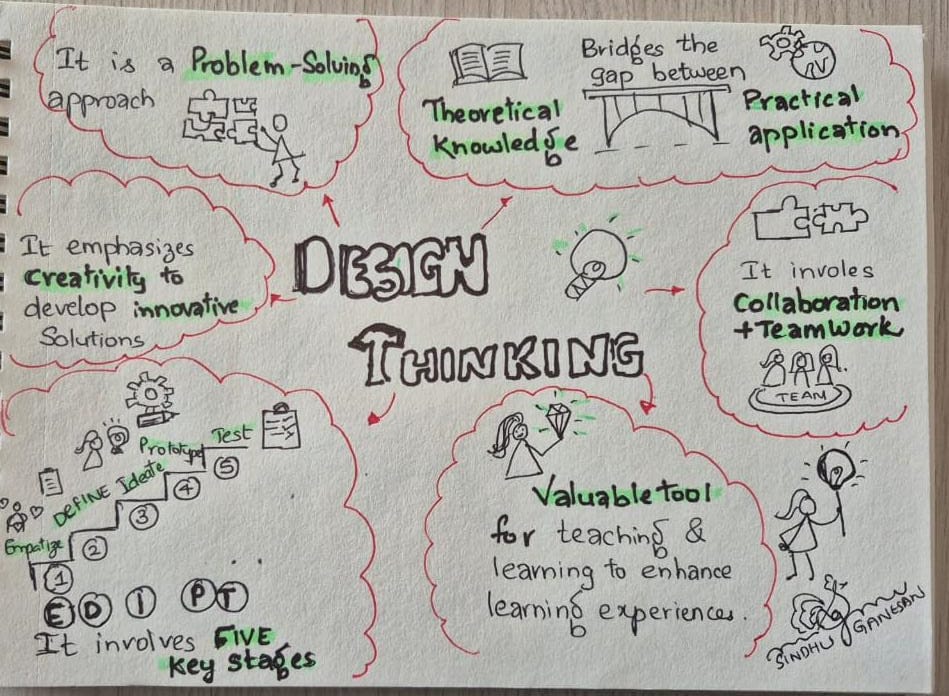 It is a Problem-Solving
approach
Bridges the
gap between
Theoretical
Knowledge
Practical
application
It emphasizes
Creativity to
develop innovative
Solutions
DESIGN
THINKING
It involes
Collaboration
+ Teamwork
TEAM
Empatize
DEFINE
Ideate
Prototype
Test
1
2
3
4
5
E D I P T
It involves FIVE
Key stages
Valuable tool
for teaching &
learning to enhance
learning experiences.
SINDHU GANESAN